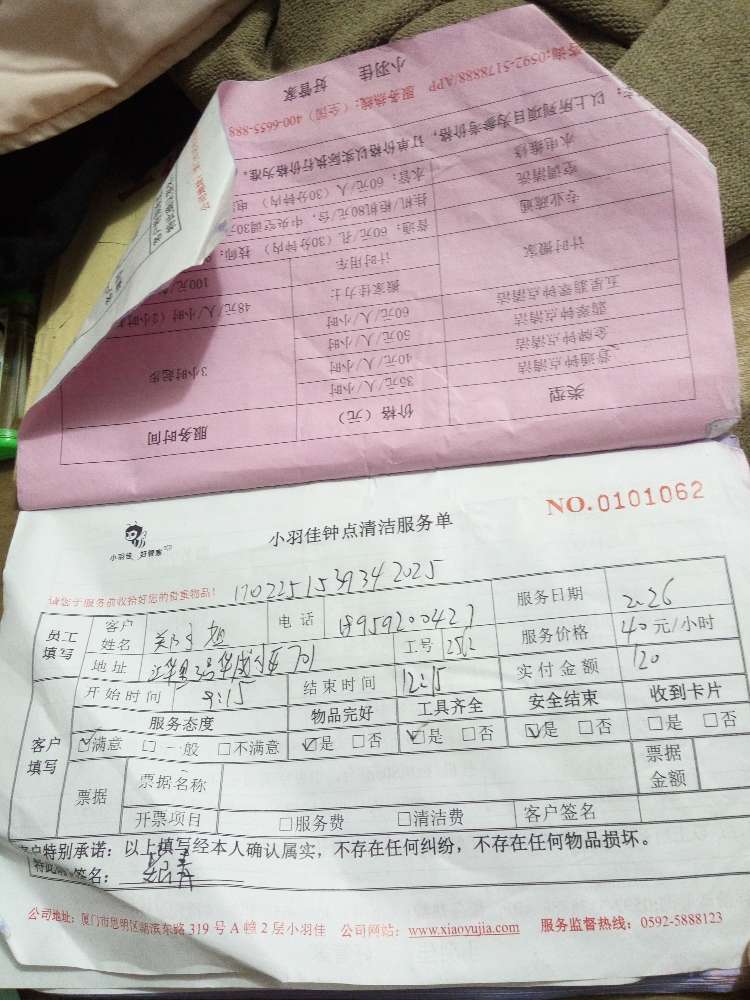 咨询:0592-5178888/APP 服务热线:(全国)400-6655-888
小羽佳 好管家
以上所列项目为参考价格,订单价格以实际执行价格为准。
水电维修
水管:60元/人(30分钟内)
空调清洗
挂机/柜机80元/台,中央空调30
专业疏通
普通:60元/孔(30分钟内) 技师:
计时搬家
计时用车
100
搬家佳力士
48元/人/小时(2小时
五星翡翠钟点清洁
60元/人/小时
翡翠钟点清洁
50元/人/小时
金牌钟点清洁
40元/人/小时
3小时起步
普通钟点清洁
35元/人/小时
类型
价格(元)
服务时间
NO.0101062
小羽佳 好管家
小羽佳钟点清洁服务单
请您于服务前收拾好您的贵重物品! 1702251539342025
员工填写
客户姓名
电话 18959200427
服务日期 2.26
地址 701
工号
服务价格 40元/小时
开始时间 9:15
结束时间 12:15
实付金额 120
客户填写
服务态度 物品完好 工具齐全 安全结束 收到卡片
☑满意 □一般 □不满意 ☑是 □否 ☑是 □否 ☑是 □否 □是 □否
票据
票据名称
票据金额
开票项目 □服务费 □清洁费 客户签名
客户特别承诺:以上填写经本人确认属实,不存在任何纠纷,不存在任何物品损坏。
签名:
公司地址:厦门市思明区湖滨东路319号A幢2层小羽佳 公司网站:www.xiaoyujia.com 服务监督热线:0592-5888123